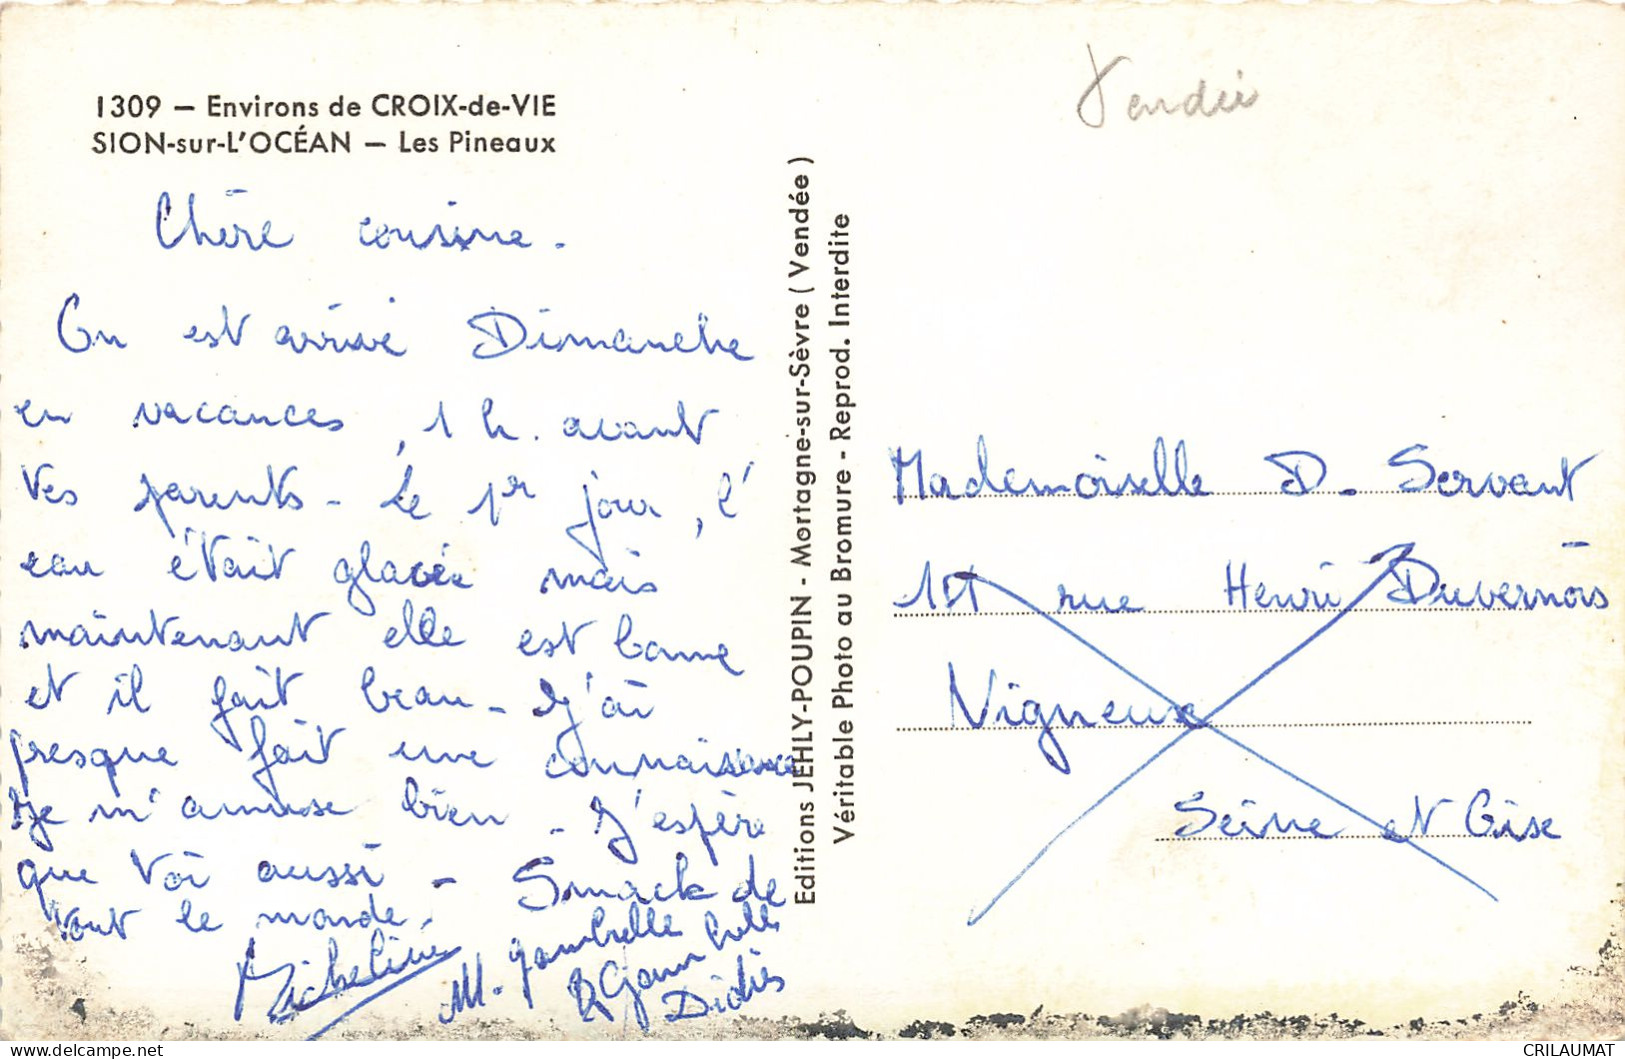 1309 — Environs de CROIX-de-VIE
SION-sur-L'OCÉAN — Les Pineaux
Chère cousine.
On est arrivé Dimanche
en vacances, 1 h. avant
tes parents - Le 1er jour, l'
eau était glacée mais
maintenant elle est bonne
et il fait beau - J'ai
presque fait une connaissance
Je m'amuse bien - J'espère
que toi aussi - Smack de
tout le monde.
Micheline
M. Gambrelle
Didier
Editions JEHLY-POUPIN - Mortagne-sur-Sèvre ( Vendée )
Véritable Photo au Bromure - Reprod. Interdite
Vendée
Mademoiselle D. Servant
rue Henri Duvernois
Vigneux
Seine et Oise
CRILAUMAT